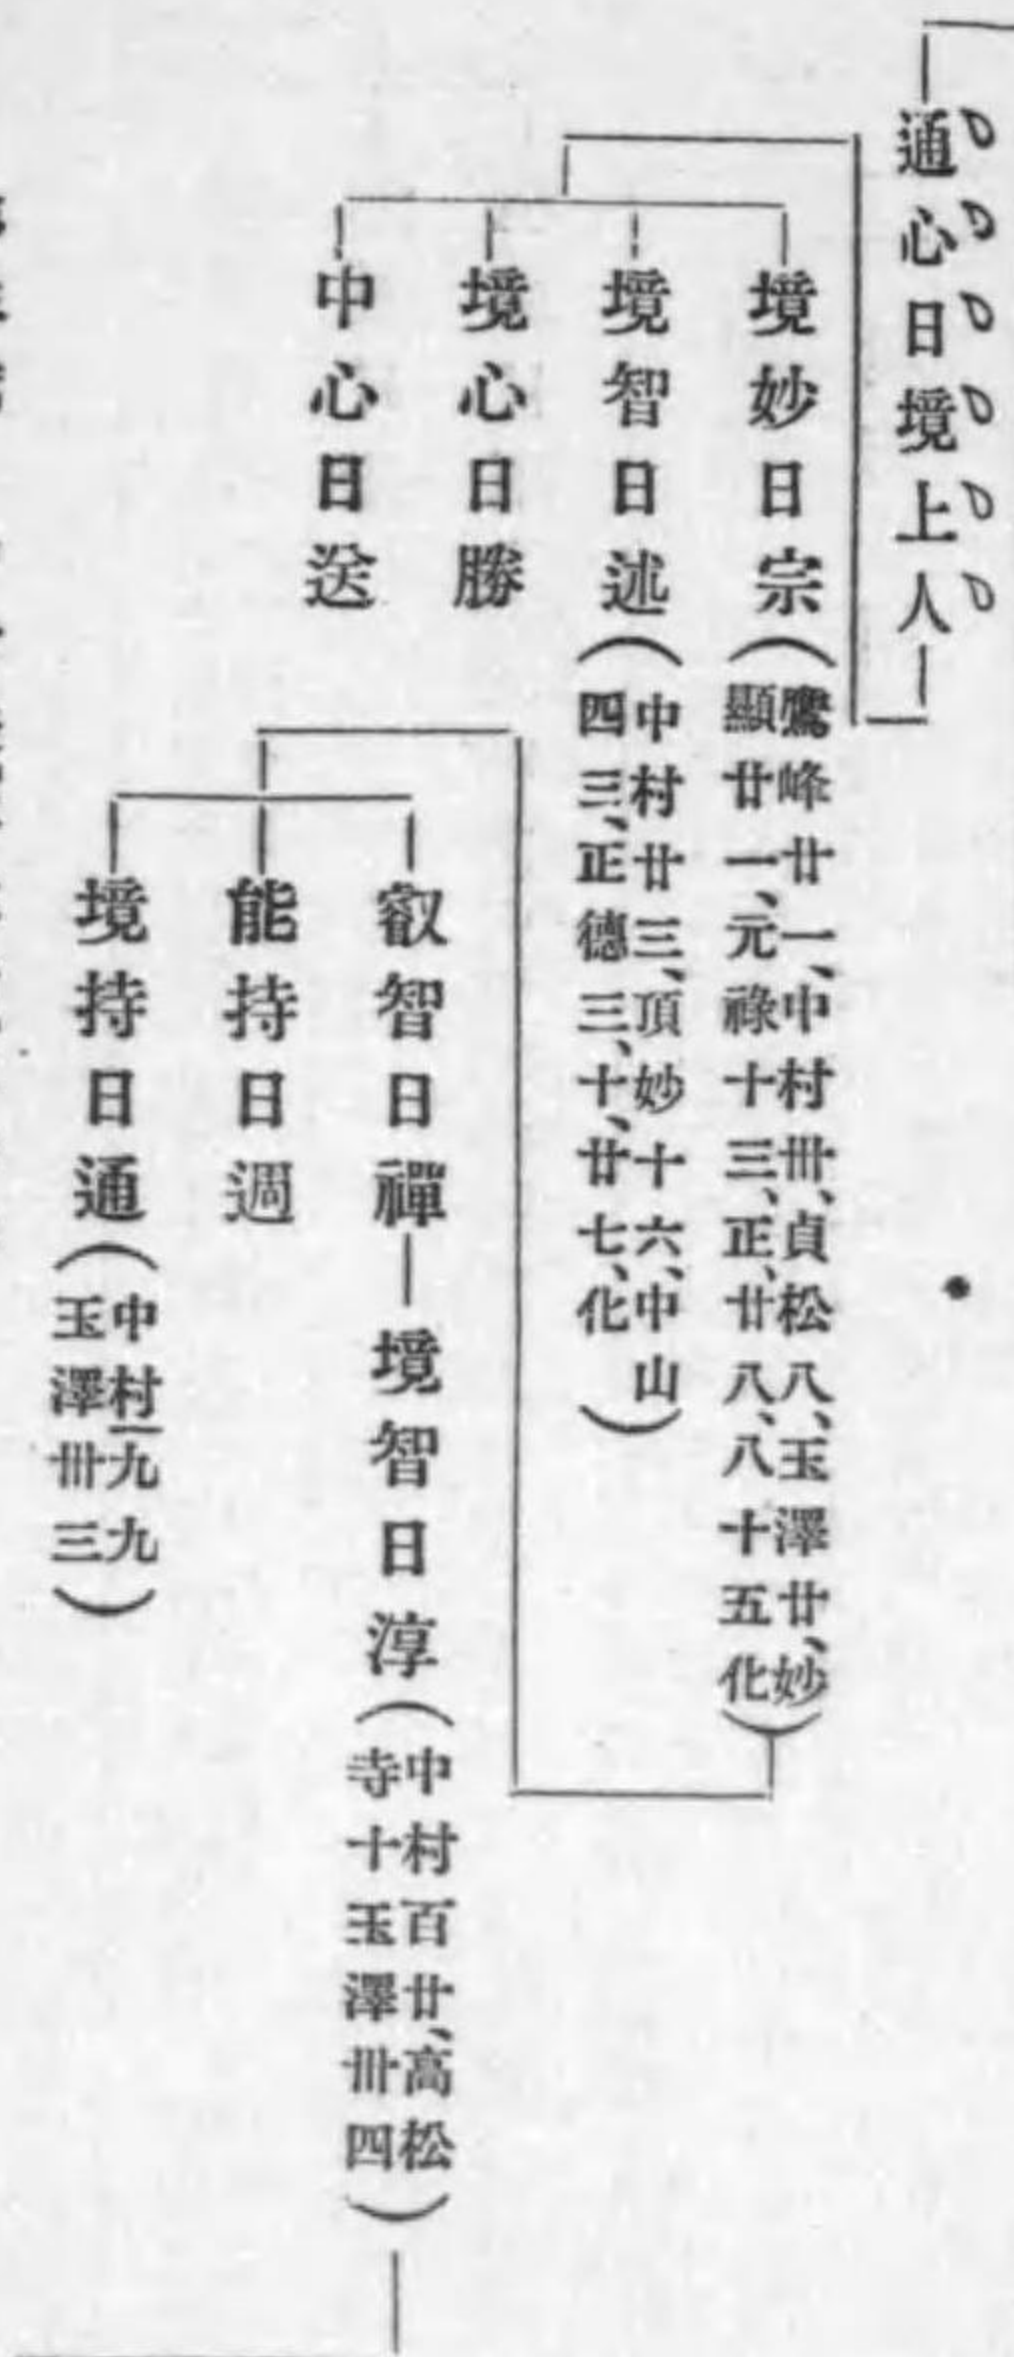 通心日境上人
境妙日宗(鷲峰廿一、中村卅、貞松八、玉澤廿、妙
顯廿一、元祿十三、正、廿八、八十五化)
境智日述(中村廿三、頂妙十六、中山
四三、正德三、十、廿七、化)
境心日勝
中心日送
叡智日禪—境智日淳(中村百廿、高松
寺十玉澤卅四)
能持日週
境持日通(中村一九九
玉澤卅三)